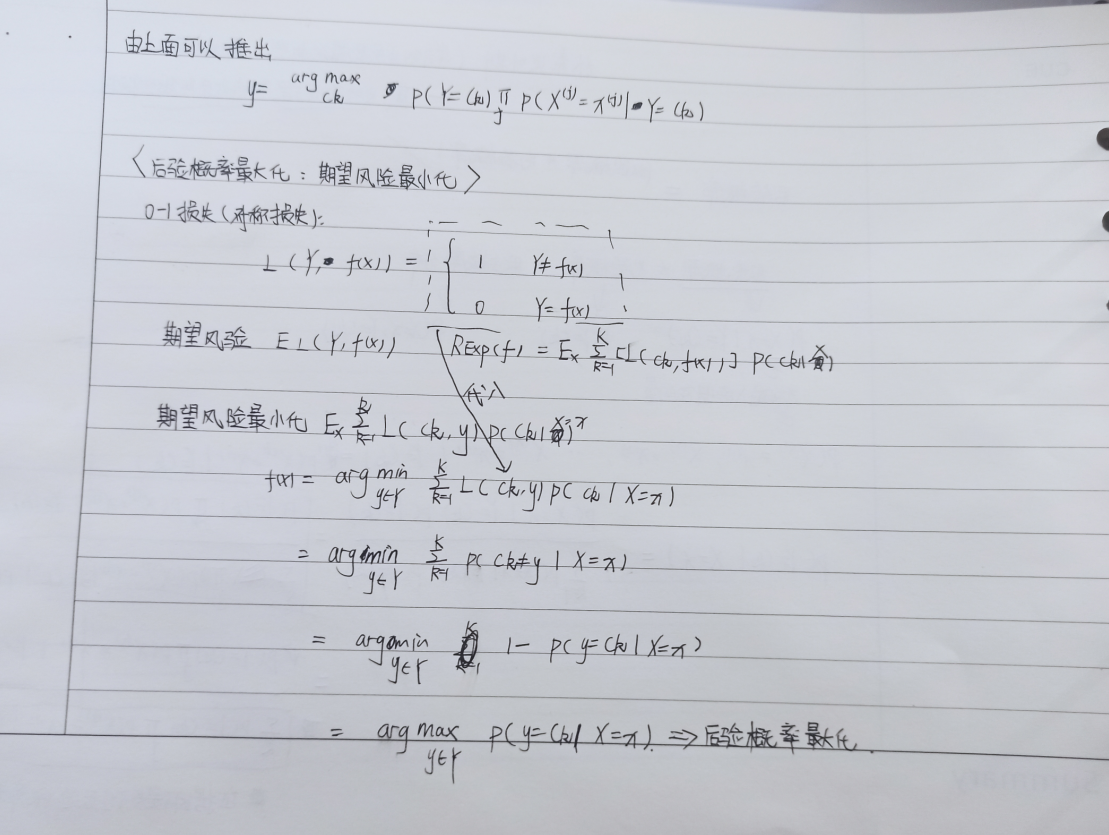 由上面可以推出
y= arg max ck P(Y=Ck) ∏ j P(X^(j)=x^(j)|Y=Ck)
<后验概率最大化：期望风险最小化>
0-1损失(对称损失)：
L(Y, f(x)) = { 1 Y≠f(x)
0 Y=f(x)
期望风险 E L(Y, f(x)) RExp(f) = Ex ∑ K k=1 [L(ck, f(x))] P(ck|X)
代入
期望风险最小化 Ex ∑ K k=1 L(ck, y) P(ck|X=x)
f(x) = arg min y∈Y ∑ K k=1 L(ck, y) P(ck|X=x)
= arg min y∈Y ∑ K k=1 P(ck≠y|X=x)
= arg min y∈Y 1- P(y=Ck|X=x)
= arg max y∈Y P(y=Ck|X=x). ⇒ 后验概率最大化.